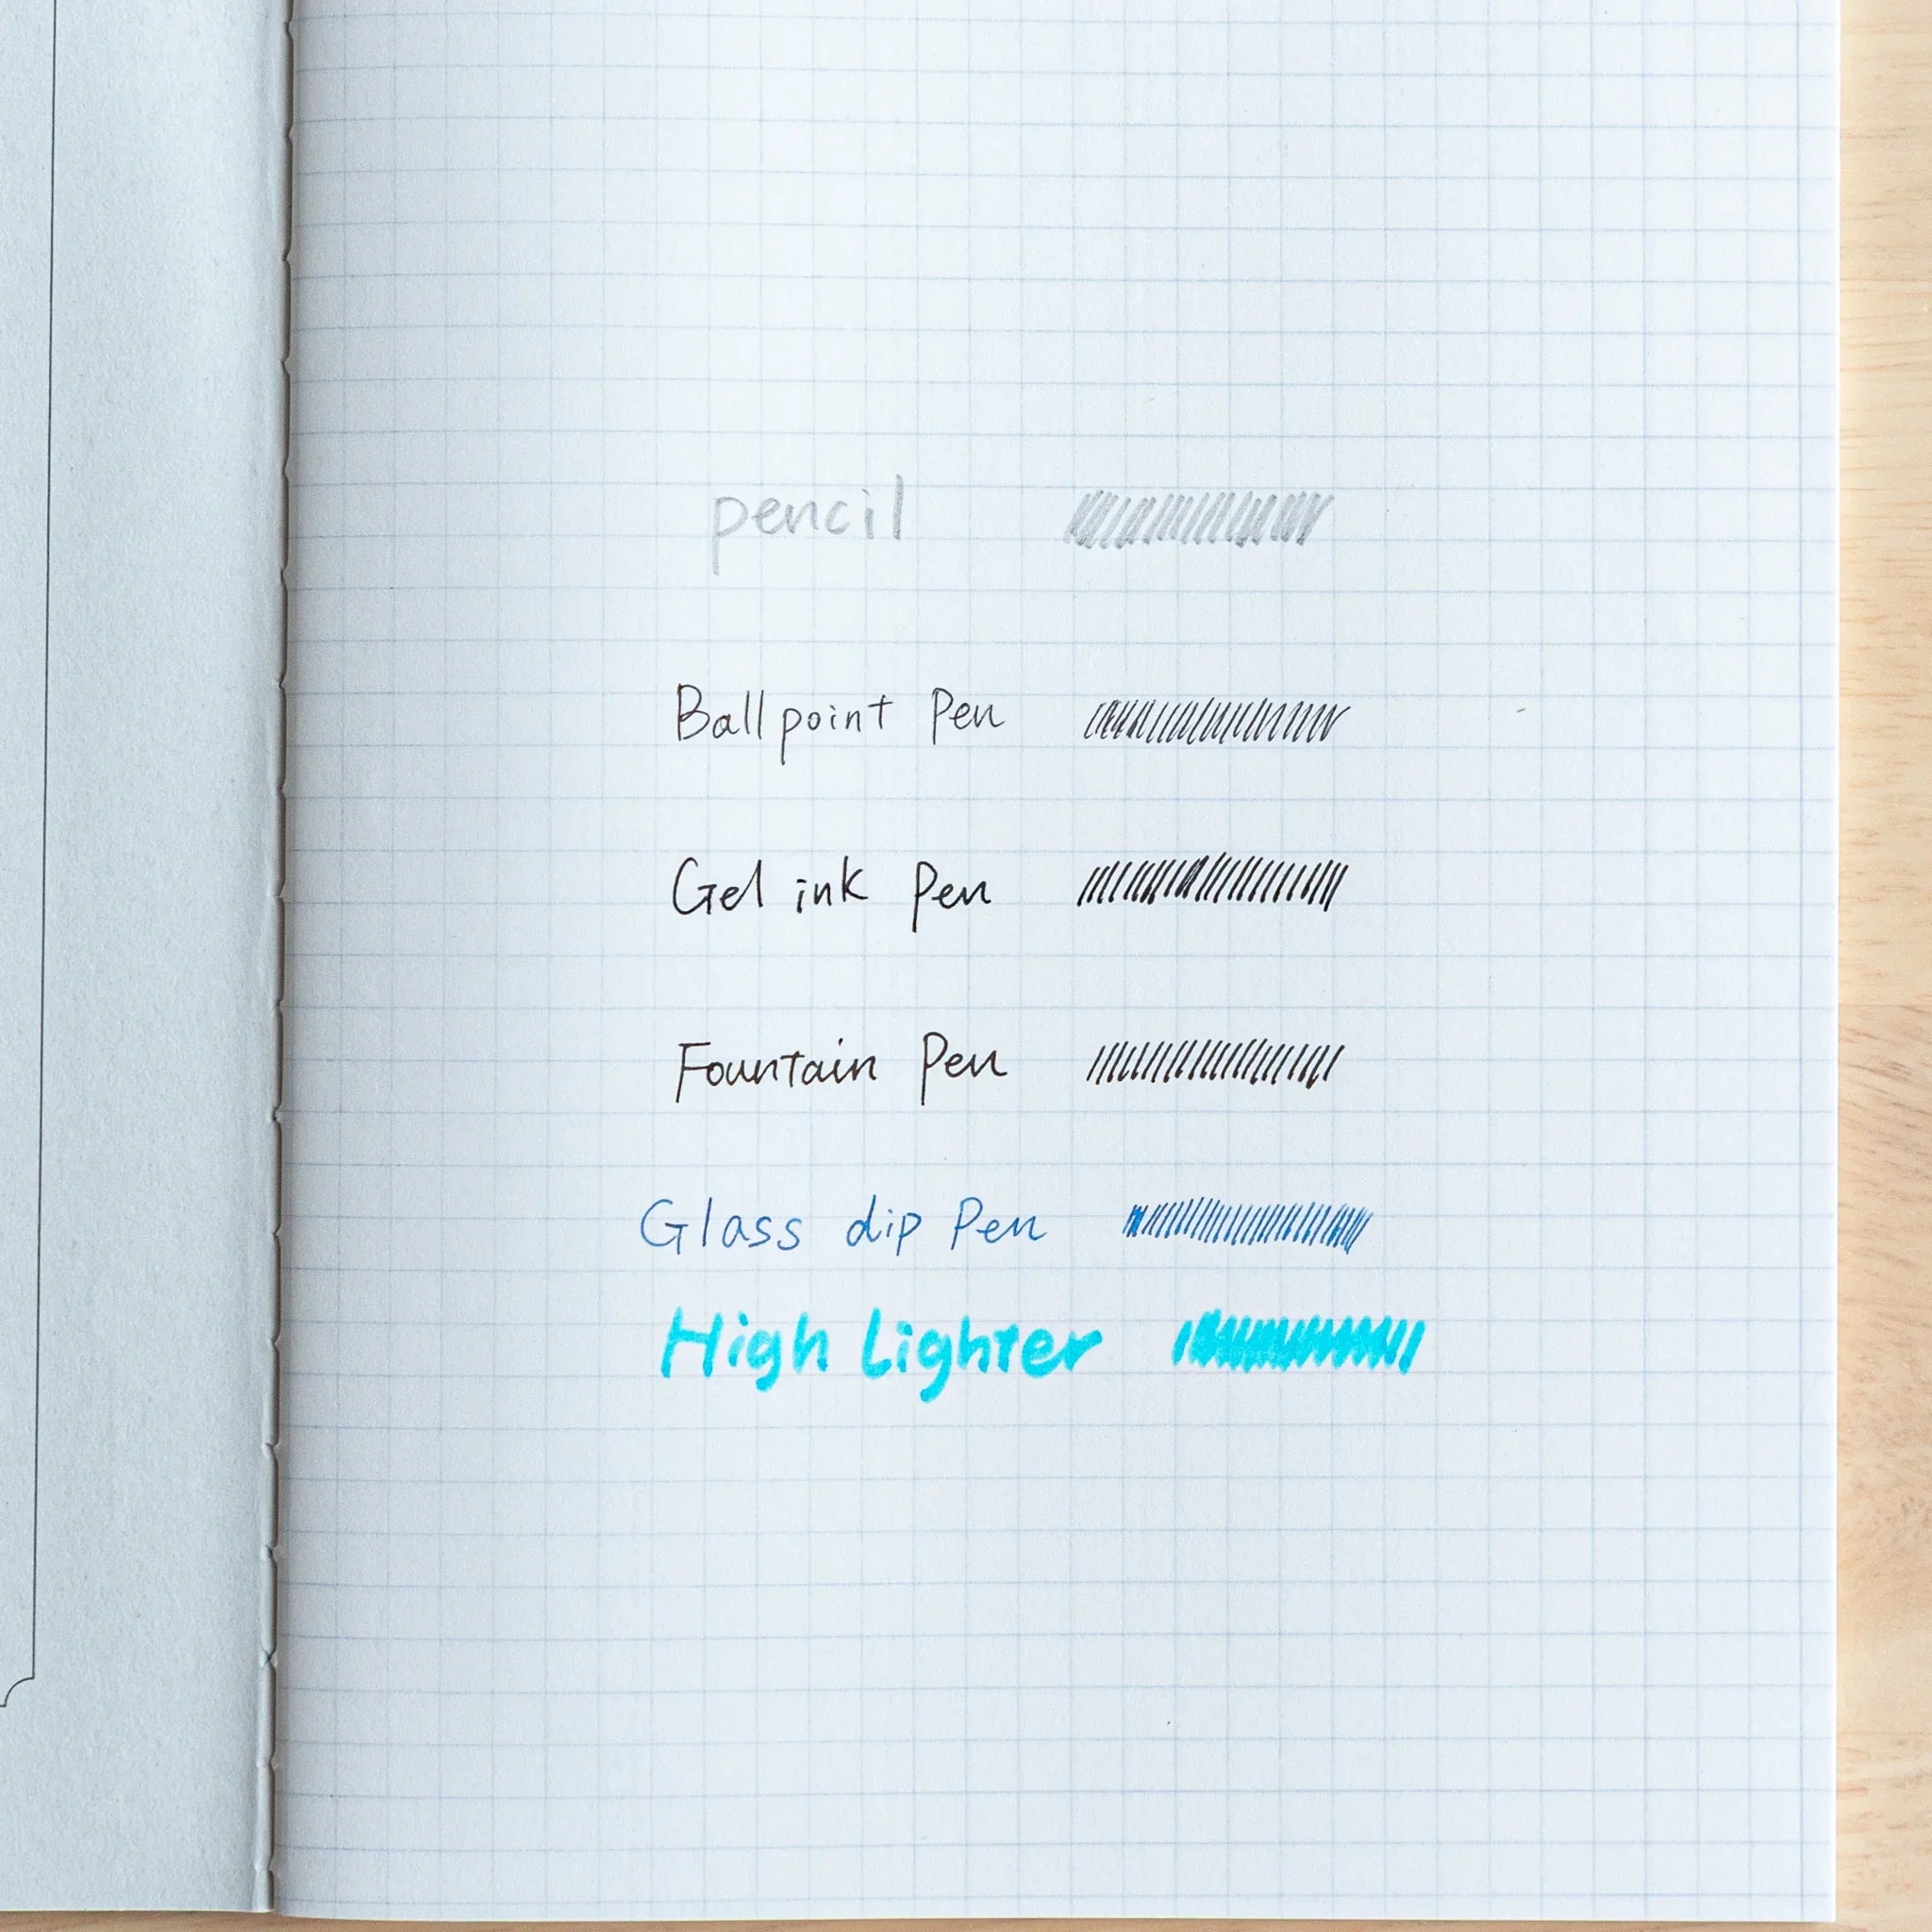 pencil
Ballpoint Pen
Gel ink Pen
Fountain Pen
Glass dip Pen
High Lighter